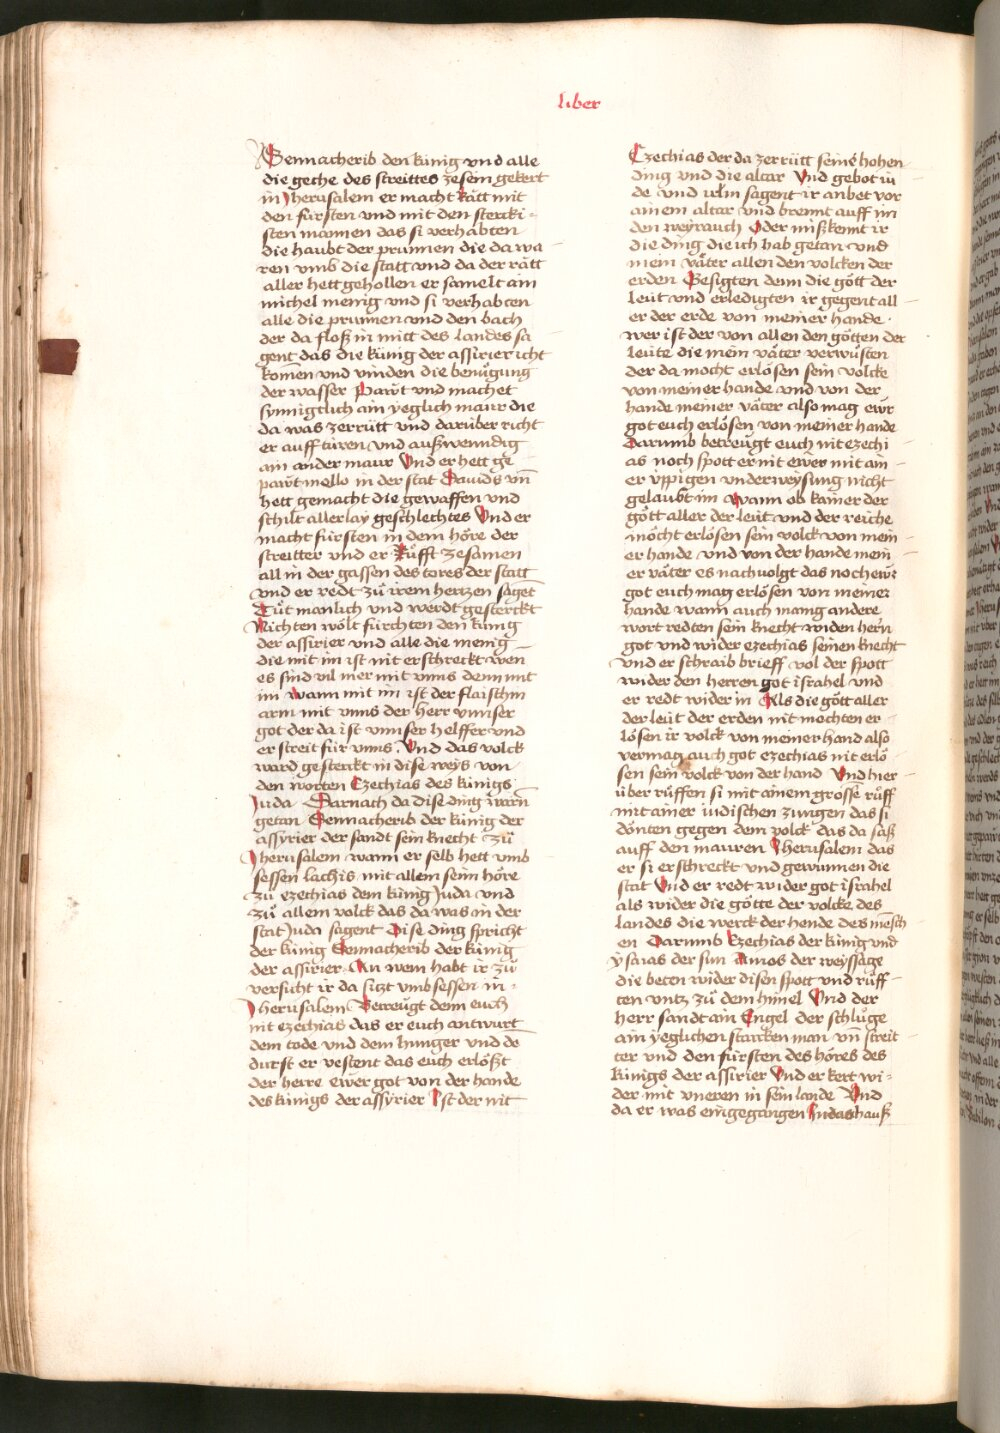 liber
Sennacherib den künig vnd alle
die geche des streittes ze sein gekert
in Jherusalem er macht Rätt mit
den fürsten vnd mit den stercki-
sten mannen das si verhabten
die haubt der prunnen die da wa
ren vmb die statt vnd da der rätt
aller hett gehollen er samelt am
michel menig vnd si verhabten
alle die prunnen vnd den bach
der da floß in mitt des landes sa
gent das die künig der assirier icht
komen vnd vinden die benügung
der wasser Pawt vnd machet
synnigklich ain yeglich maur die
da was zerrütt vnd darüber richt
er auff türen vnd außwenndig
ain ander maur Vnd er hett ge
pawt mello in der stat Dauids vn̄
hett gemacht die gewaffen vnd
schilt allerlay geschlechtes Vnd er
macht fürsten in dem höre der
streitter vnd er Rüfft zesamen
all in der gassen des tores der statt
vnd er redt zů irem hertzen saget
Tůt manlich vnd werdt gesterckt
Nichten wölt fürchten den künig
der assirier vnd alle die menig
die mit im ist nit erschreckt wen
es sind vil mer mit vnns denn mit
im Wann mit im ist der flaischin
arm mit vnns der herr vnnser
got der da ist vnnser helffer vnd
er streit für vnns Vnd das volck
ward gesterckt in dise weys von
den worten Ezechias des künigs
Juda Darnach da dise ding warn
getan Sennacherib der künig der
assyrier der sandt sein knecht zů
Jherusalem wann er selb hett vmb
sessen lachis mit allem seim höre
zů ezechias dem künig Juda vnd
zů allem volck das da was in der
stat Juda sagent Dise ding spricht
der künig Sennacherib der künig
der assirier An wem habt ir zů
versicht ir da sitzt vmbsessen in
Jherusalem Betreugt denn euch
nit ezechias das er euch antwurt
dem tode vnd dem hunger vnd de
durst er vestent das euch erlößt
der herre ewer got von der hande
des künigs der assyrier Ist der nit
Ezechias der da zerrütt seine hohen
ding vnd die altar Vnd gebot iu
de vnd irlm sagent ir anbet vor
ainem altar vnd brennt auff im
den weyrauch Oder mißkennt ir
die ding die ich hab getan vnd
mein väter allen den volcken der
erden Gesigten denn die gött der
leüt vnd erledigten ir gegent all
er der erde von meiner hande
wer ist der von allen den götten der
leüte die mein väter verwüsten
der da mocht erlösen sein volcke
von meiner hande vnd von der
hande meiner väter also mag ewr
got euch erlösen von meiner hande
Darumb betreugt euch nit ezechi
as noch spott er nit ewer mit ain
er üppigen vnderweysung nicht
gelaubt im Wann ob kainer der
gött aller der leüt vnd der reiche
möcht erlösen sein volck von mein
er hande vnd von der hande mein
er väter es nachuolgt das noch ewr
got euch mag erlösen von meiner
hande wann auch manig andere
wort redten sein knecht widen hern
got vnd wider ezechias seinen knecht
vnd er schraib brieff vol der spott
wider den herren got israhel vnd
er redt wider in Als die gött aller
der leüt der erden nit mochten er
lösen ir volck von meiner hand also
vermag auch got ezechias nit erlö
sen sein volck von der hand Vnd hier
über rüffen si mit ainem grosse rüff
mit ainer iudischen zungen das si
dönten gegen dem volck das da saß
auff den mauren Jherusalem das
er si erschreckt vnd gewunnen die
stat Vnd er redt wider got israhel
als wider die götte der volcke des
landes die werck der hende des mēsch
en Darumb Ezechias der künig vnd
ysaias der sun Amos der weyssage
die beten wider disen spott vnd rüff
ten vntz zů dem himel Vnd der
herr sandt ain Engel der schlůge
ain yeglichen starcken man vn̄ streit
ter vnd den fürsten des höres des
künigs der assirier Vnd er kert wi-
der mit vneren in sein lande Vnd
da er was eingegangen Judas hauß